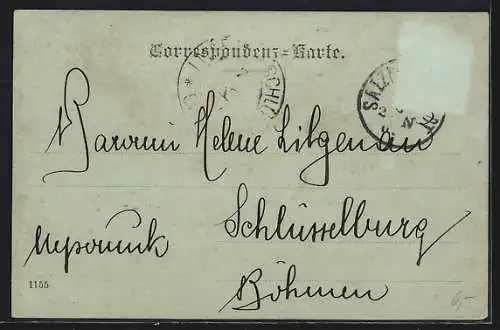 Correspondenz-Karte.
SALZ
Baronin Helene Lilgenau
Schlüsselburg
Böhmen
1155
6,-